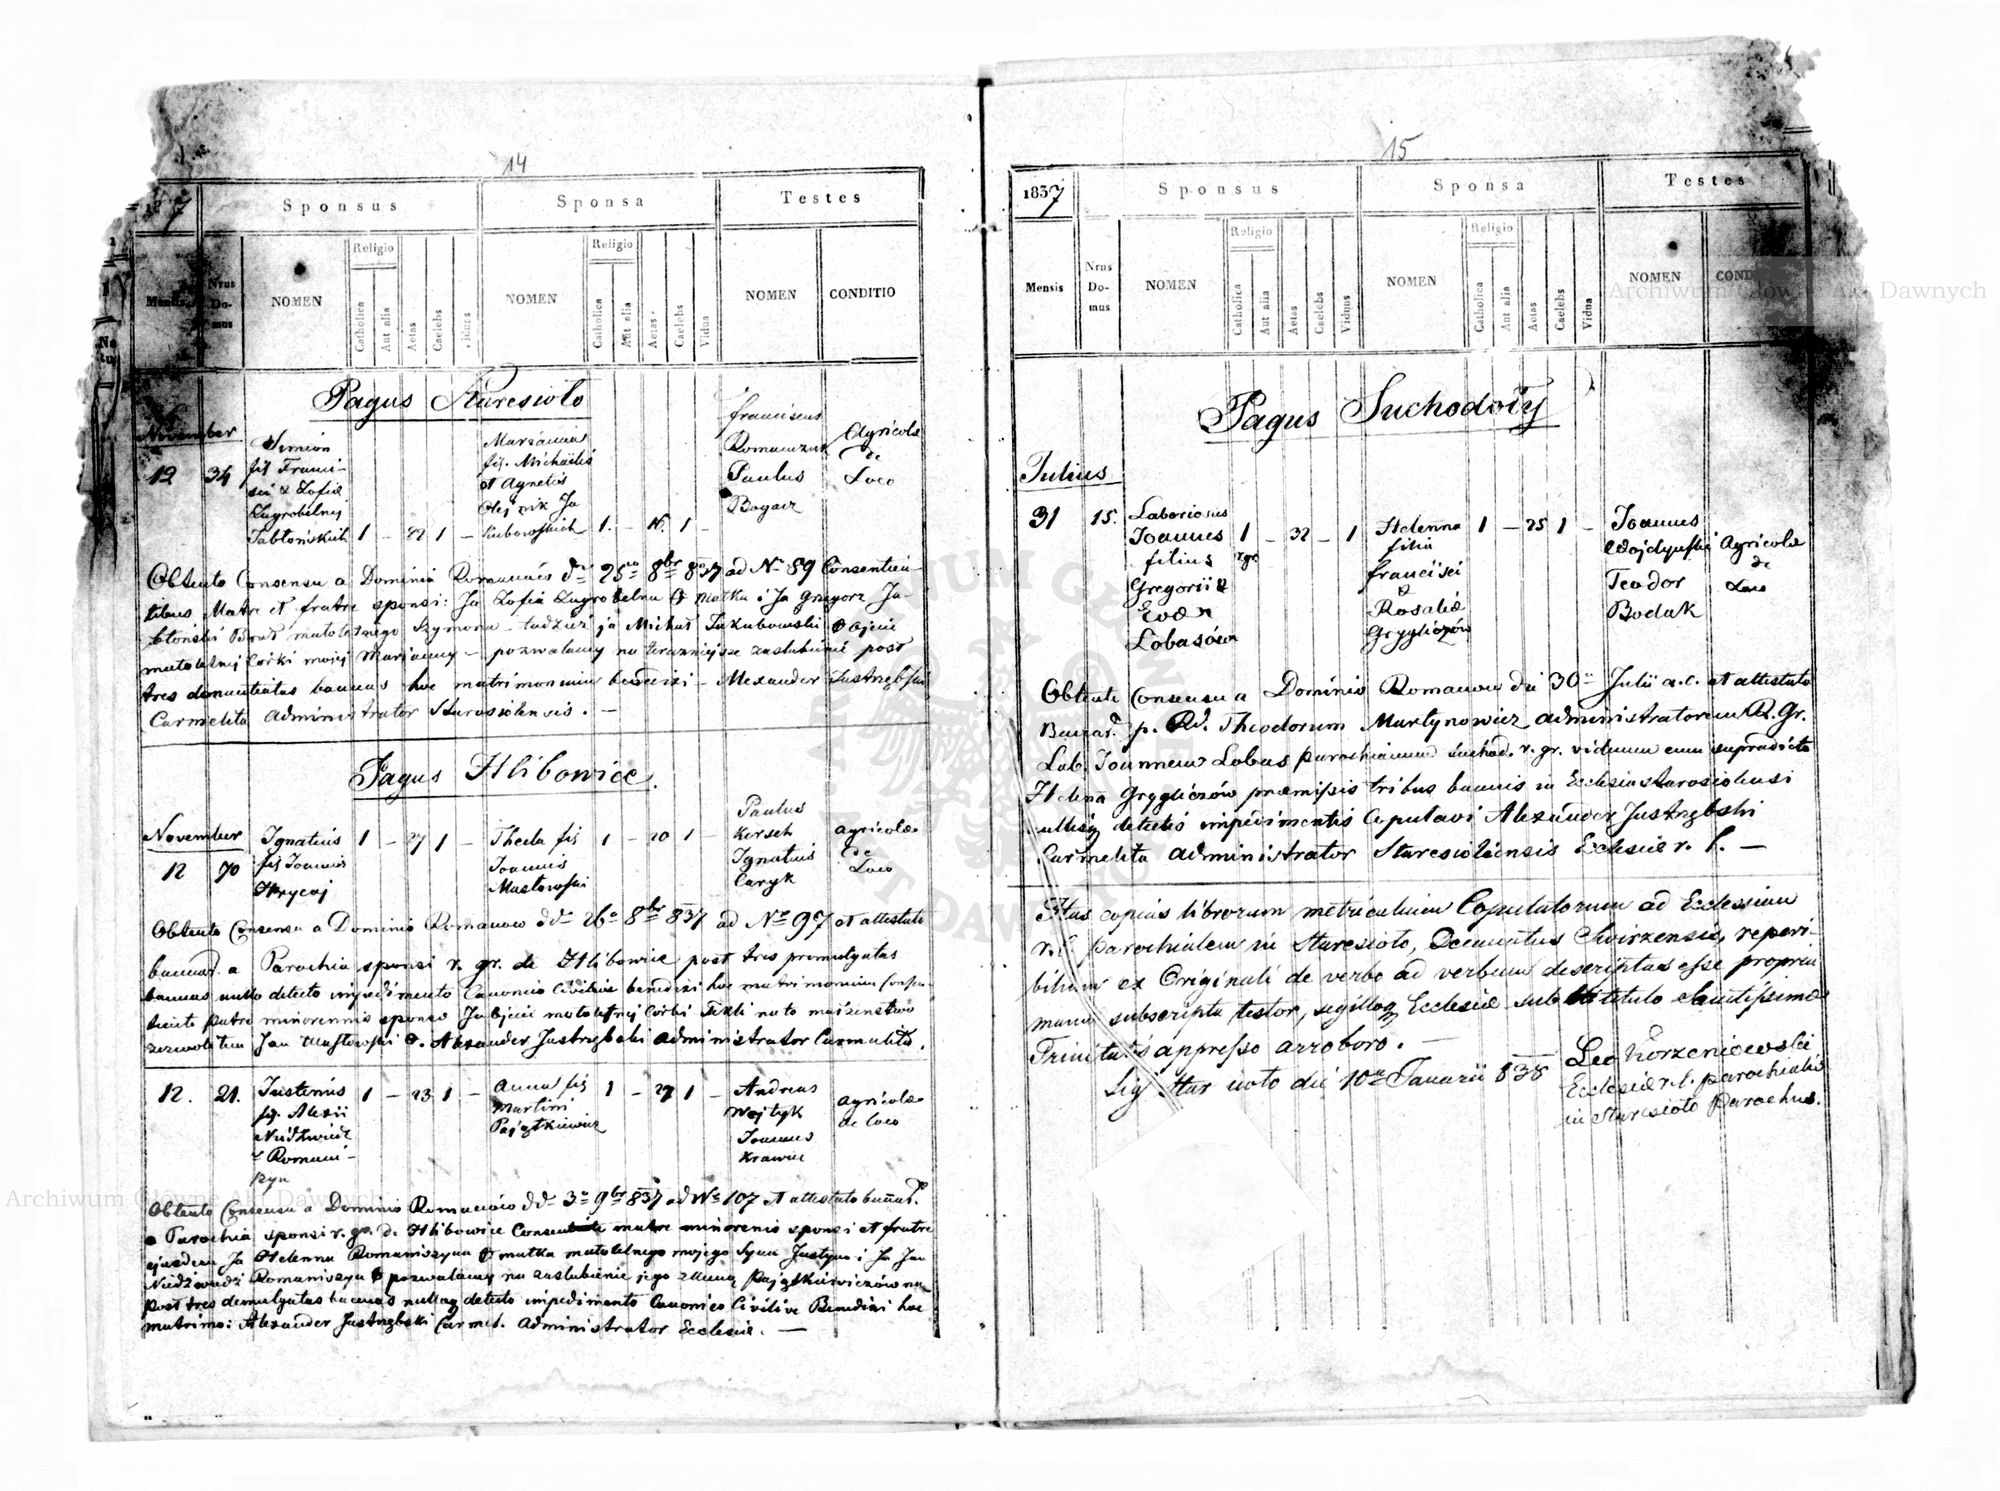 14
1837
Sponsus
Sponsa
Testes
Mensis
Nrus Domus
NOMEN
Religio
Catholica
Aut alia
Aetas
Caelebs
Viduus
NOMEN
Religio
Catholica
Aut alia
Aetas
Caelebs
Vidua
NOMEN
CONDITIO
Pagus Staresioło
November
12 34
Simeon
fil Franci-
sci & Zofia
Zagrobelny
Jabłońskich 1 – 22 1 –
Marianna
fil. Michaelis
et Agnetis
Olejnik Ja
kubowskich 1. – 16. 1 –
franciscus
Romanczuk
Paulus
Bogacz
Agricolæ
de
Loco
Obtento Consensu a Dominio Romanów dto 25ta 8br 837 ad No 89 Consentien-
tibus Matre et fratre sponsi: Ja Zofia Zagrobelna Matka i Ja Grzegorz Ja-
błoński Brat małoletniego Szymona – tudzież ja Michał Jakubowski Ojciec
małoletniej Córki mojej Marianny – pozwalamy na teraznieysze zaslubienie post
tres denuntiatas bannas hoc matrimonium benedixi – Alexander Jastrzębski
Carmelita Administrator Starosiolensis. –
Pagus Hlibowice.
November
12 70
Ignatius 1 – 27 1 –
fil Joannis
Hrycaj
Thecla fil 1 – 20 1 –
Joannis
Masłowski
Paulus
Kersek
Ignatius
Caryk
agricolæ
de
Loco
Obtento Consensu a Dominio Romanow ddto 26o 8br 837 ad No 97 et attestato
bannal. a Parochia sponsi r. gr. de Hlibowice post tres promulgatas
bannas nullo detecto impedimento Canonico Civilive benedixi hoc matrimonium Consen-
tiente patre minorennis sponsæ Ja Ojciec małoletniej Córki Tekli na to małżeństwo
zezwolitem Jan Masłowski Alexander Jastrzębski Administrator Carmelita.
12. 21. Justinus 1 – 23 1 –
fil. Alexii
Niedzwiedz
Romani-
szyn
Anna fil 1 – 27 1 –
Martini
Pajątkiewicz
Andreas
Wojtyk
Joannes
Krawiec
agricolæ
de Loco
Obtento Consensu a Dominio Romanów ddto 3o 9br 837 ad No 107 et attestato bannal.
a Parochia sponsi r. gr. de Hlibowice Consentiente matre minorenis sponsi et fratre
ejusdem Ja Helenna Romaniszyna matka małoletniego mojego Syna Justyna i Ja Jan
Niedzwiedz Romaniszyn pozwalamy na zaslubienie jego z Anną Pajątkiewiczów na
Post tres demulgatas bannas nulloq detecto impedimento Canonico Civilive Benedixi hoc
matrimo: Alexander Jastrzębski Carmel. Administrator Ecclesiæ. –
15
1837
Sponsus
Sponsa
Testes
Mensis
Nrus Domus
NOMEN
Religio
Catholica
Aut alia
Aetas
Caelebs
Viduus
NOMEN
Religio
Catholica
Aut alia
Aetas
Caelebs
Vidua
NOMEN
COND
Pagus Suchodoły
Julius
31 15.
Laboriosus
Joannes 1 – 32 – 1
filius r.gr.
Gregorii &
Evæ
Lobasów
Helenna 1 – 25 1 –
filia
francisci
&
Rosaliæ
Grygliczów
Joannes
Wojdyński
Teodor
Bodak
Agricolæ
de
Loco
Obtento Consensu a Dominio Romanow die 30a Julii a.c. et attestato
Bannal. p. Rd. Theodorum Martynowicz Administratorem R. Gr.
Lab. Joannem Lobas parochianum Suchod. r. gr. viduum cum supradicta
Helena Grygliczów præmissis tribus bannis in Ecclesia Starosiolensi
nullisq detectis impedimentis Copulavi Alexander Jastrzębski
Carmelita Administrator Staresiolensis Ecclesiæ r. l. –
Has copias librorum metricalium Copulatorum ad Ecclesiam
r.l. parochialem in Staresioło, Decanatus Swirzensis, reperi-
bilium ex Originali de verbo ad verbum descriptas esse propria
manu subscripta testor, sigilloq Ecclesiæ sub titulo Sanctissimæ
Trinitatis appresso arroboro. –
Sig Staresioło die 10a Januarii 838
Leo Korzeniowski
Ecclesiæ r.l. parochialis
in Staresioło Parochus.
Archiwum Główne Akt Dawnych
Archiwum Główne Akt Dawnych